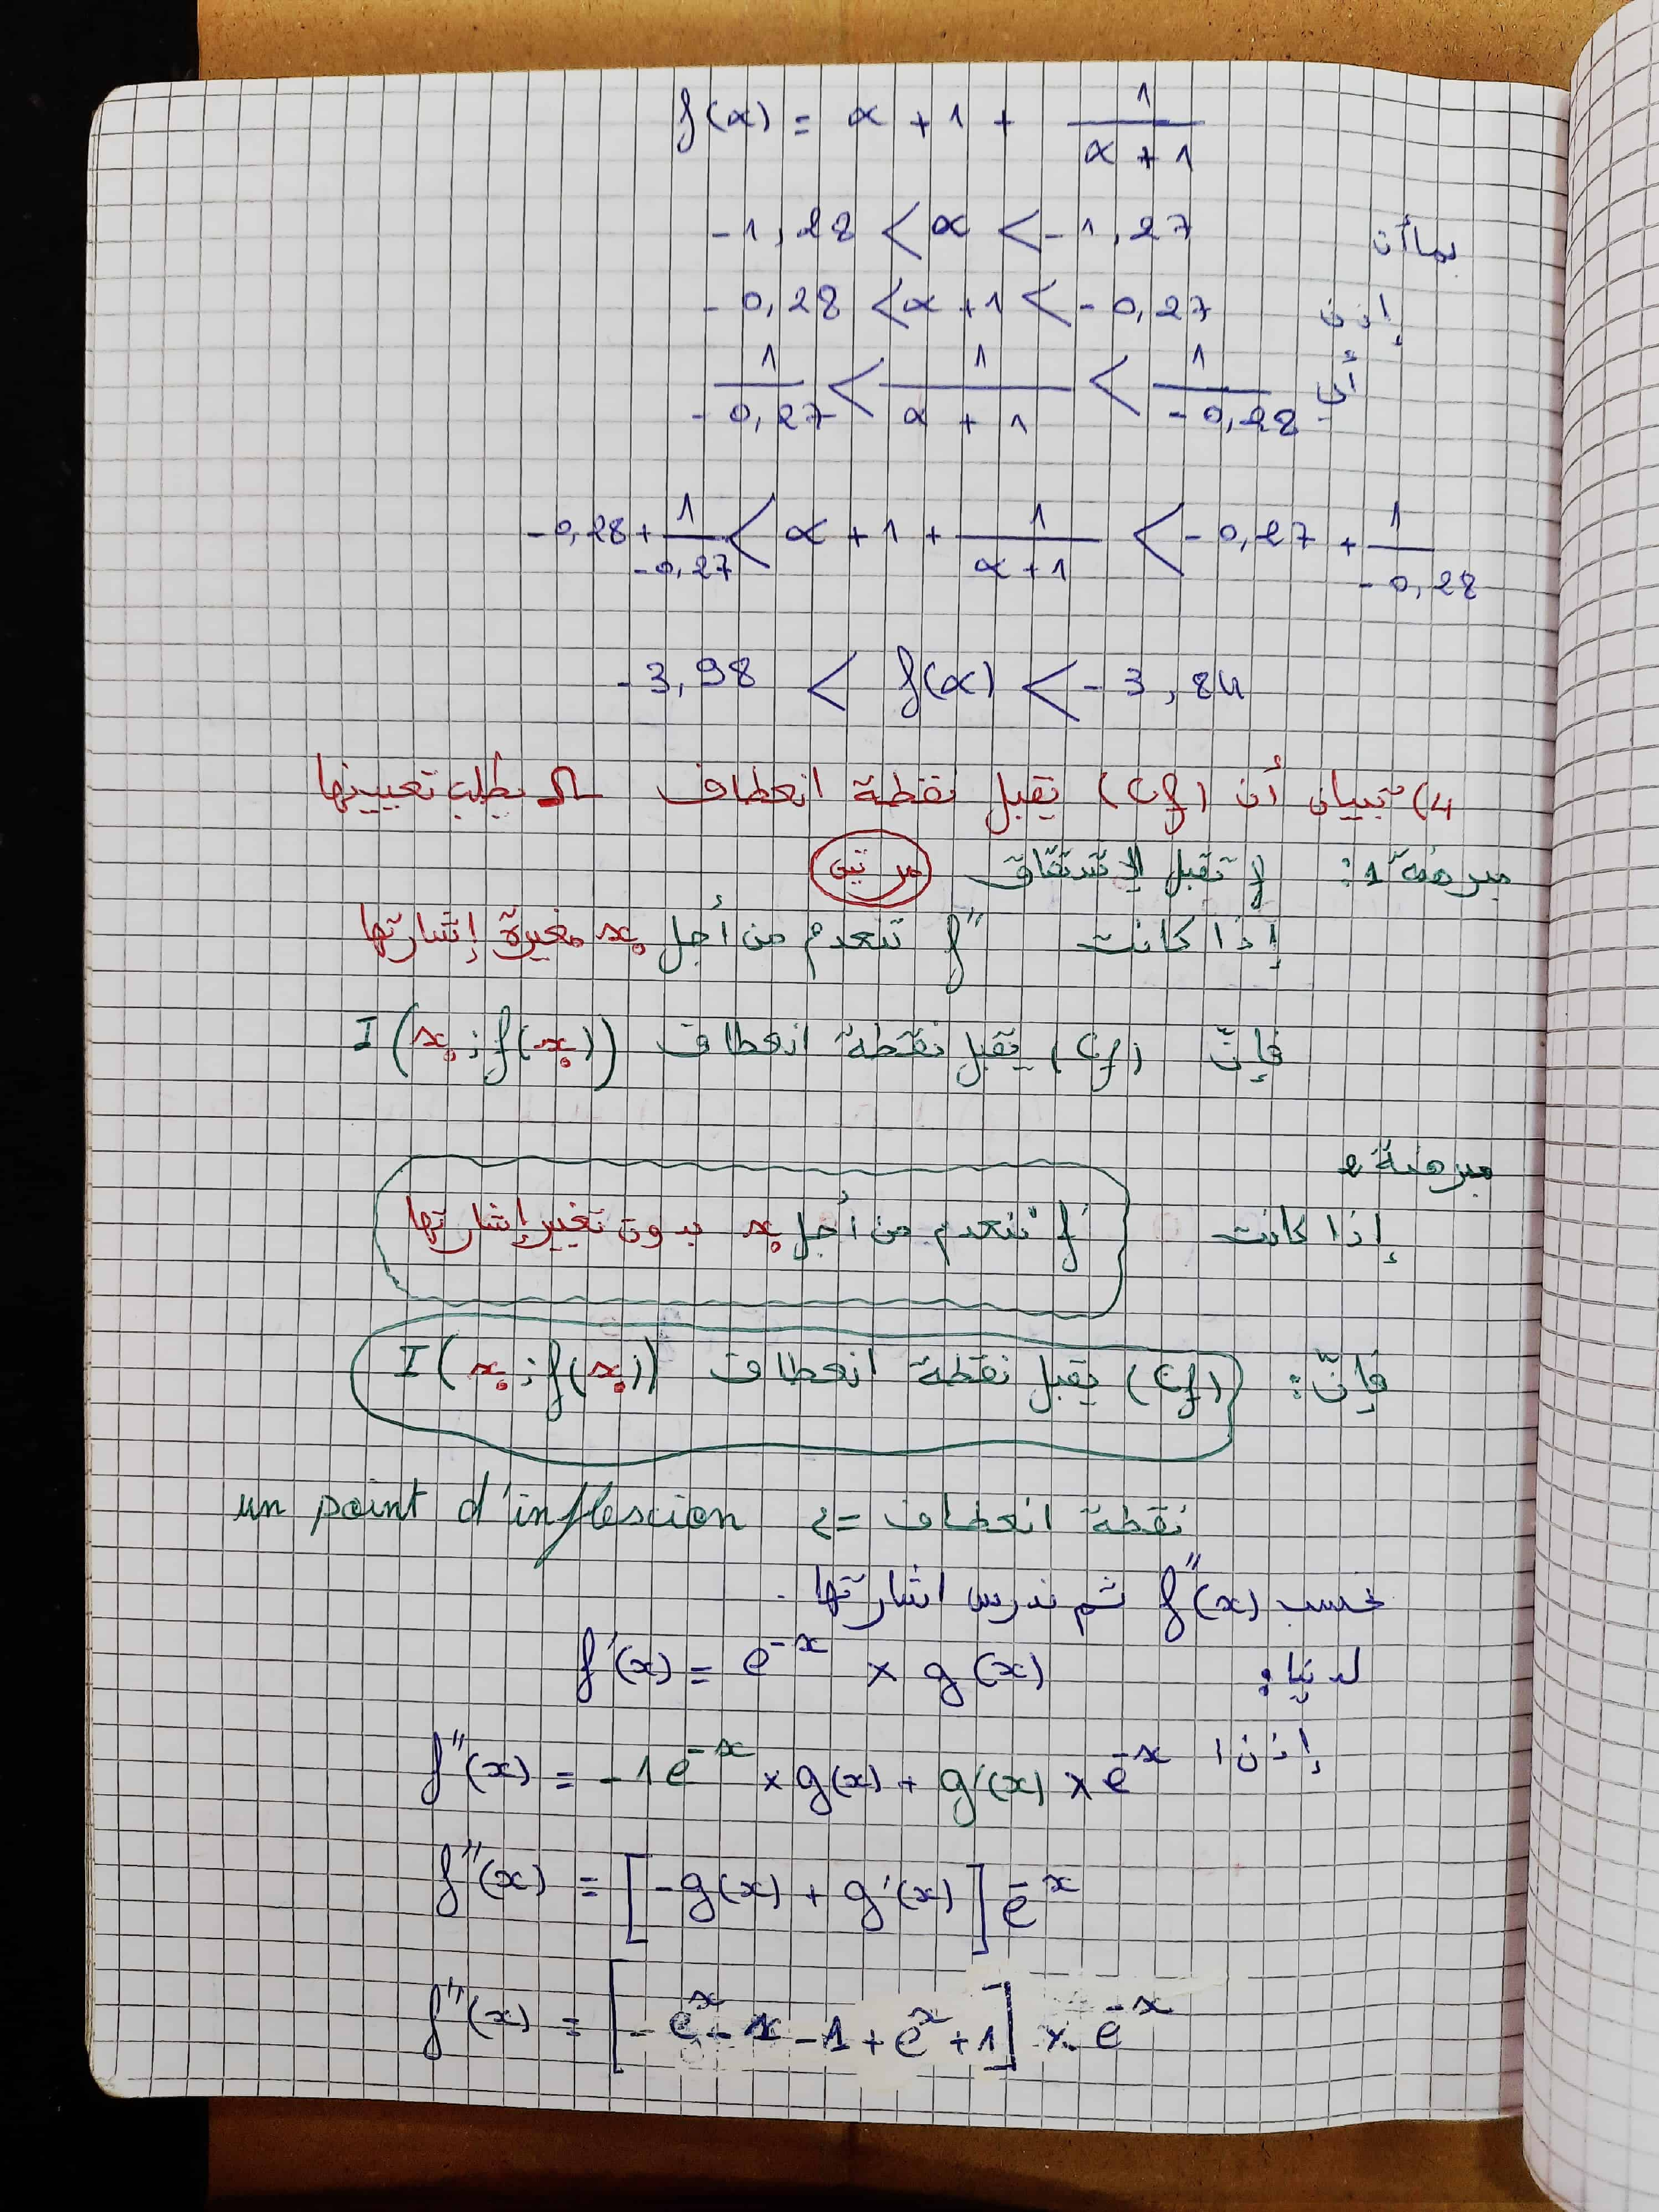 f(α) = α + 1 + 1/(α + 1)
بما أن -1,28 < α < -1,27
إذن -0,28 < α + 1 < -0,27
أي 1/(-0,27) < 1/(α + 1) < 1/(-0,28)
-0,28 + 1/(-0,27) < α + 1 + 1/(α + 1) < -0,27 + 1/(-0,28)
-3,98 < f(α) < -3,84
4) تبيان أن (Cf) يقبل نقطة انعطاف Ω يطلب تعيينها
مبرهنة 1: f تقبل الاشتقاق مرتين
إذا كانت f'' تنعدم من أجل x₀ مغيرة إشارتها
فإنّ (Cf) يقبل نقطة انعطاف I(x₀; f(x₀))
مبرهنة 2
إذا كانت f' تنعدم من أجل x₀ بدون تغيير إشارتها
فإنّ: (Cf) يقبل نقطة انعطاف I(x₀; f(x₀))
نقطة انعطاف = un point d'inflexion
نحسب f''(x) ثم ندرس اشارتها.
لدينا: f'(x) = e^-x × g(x)
إذن: f''(x) = -1e^-x × g(x) + g'(x) × e^-x
f''(x) = [-g(x) + g'(x)] e^-x
f''(x) = [-e^x - x - 1 + e^x + 1] × e^-x